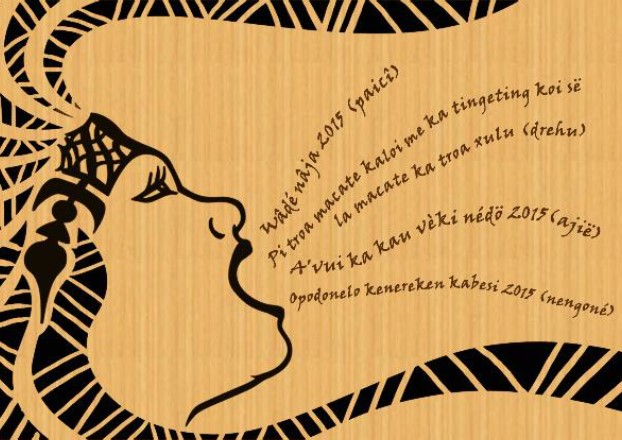 Wâdé nâja 2015 (paicî)
Pi troa macate kaloi me ka tingeting koi së
la macate ka troa xulu (drehu)
A'vui ka kau vèki nédö 2015 (ajië)
Opodonelo kenereken kabesi 2015 (nengoné)